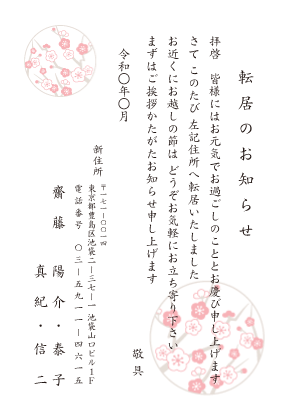 転居のお知らせ
拝啓 皆様にはお元気でお過ごしのこととお慶び申し上げます
さて このたび 左記住所へ転居いたしました
お近くにお越しの節は どうぞお気軽にお立ち寄り下さい
まずはご挨拶かたがたお知らせ申し上げます
敬具
令和〇年〇月
新住所
〒一七一-〇〇一四
東京都豊島区池袋二-三七-一 池袋山口ビル1F
電話番号 〇三-五九一一-四六一五
齋藤 陽介・泰子
真紀・信二